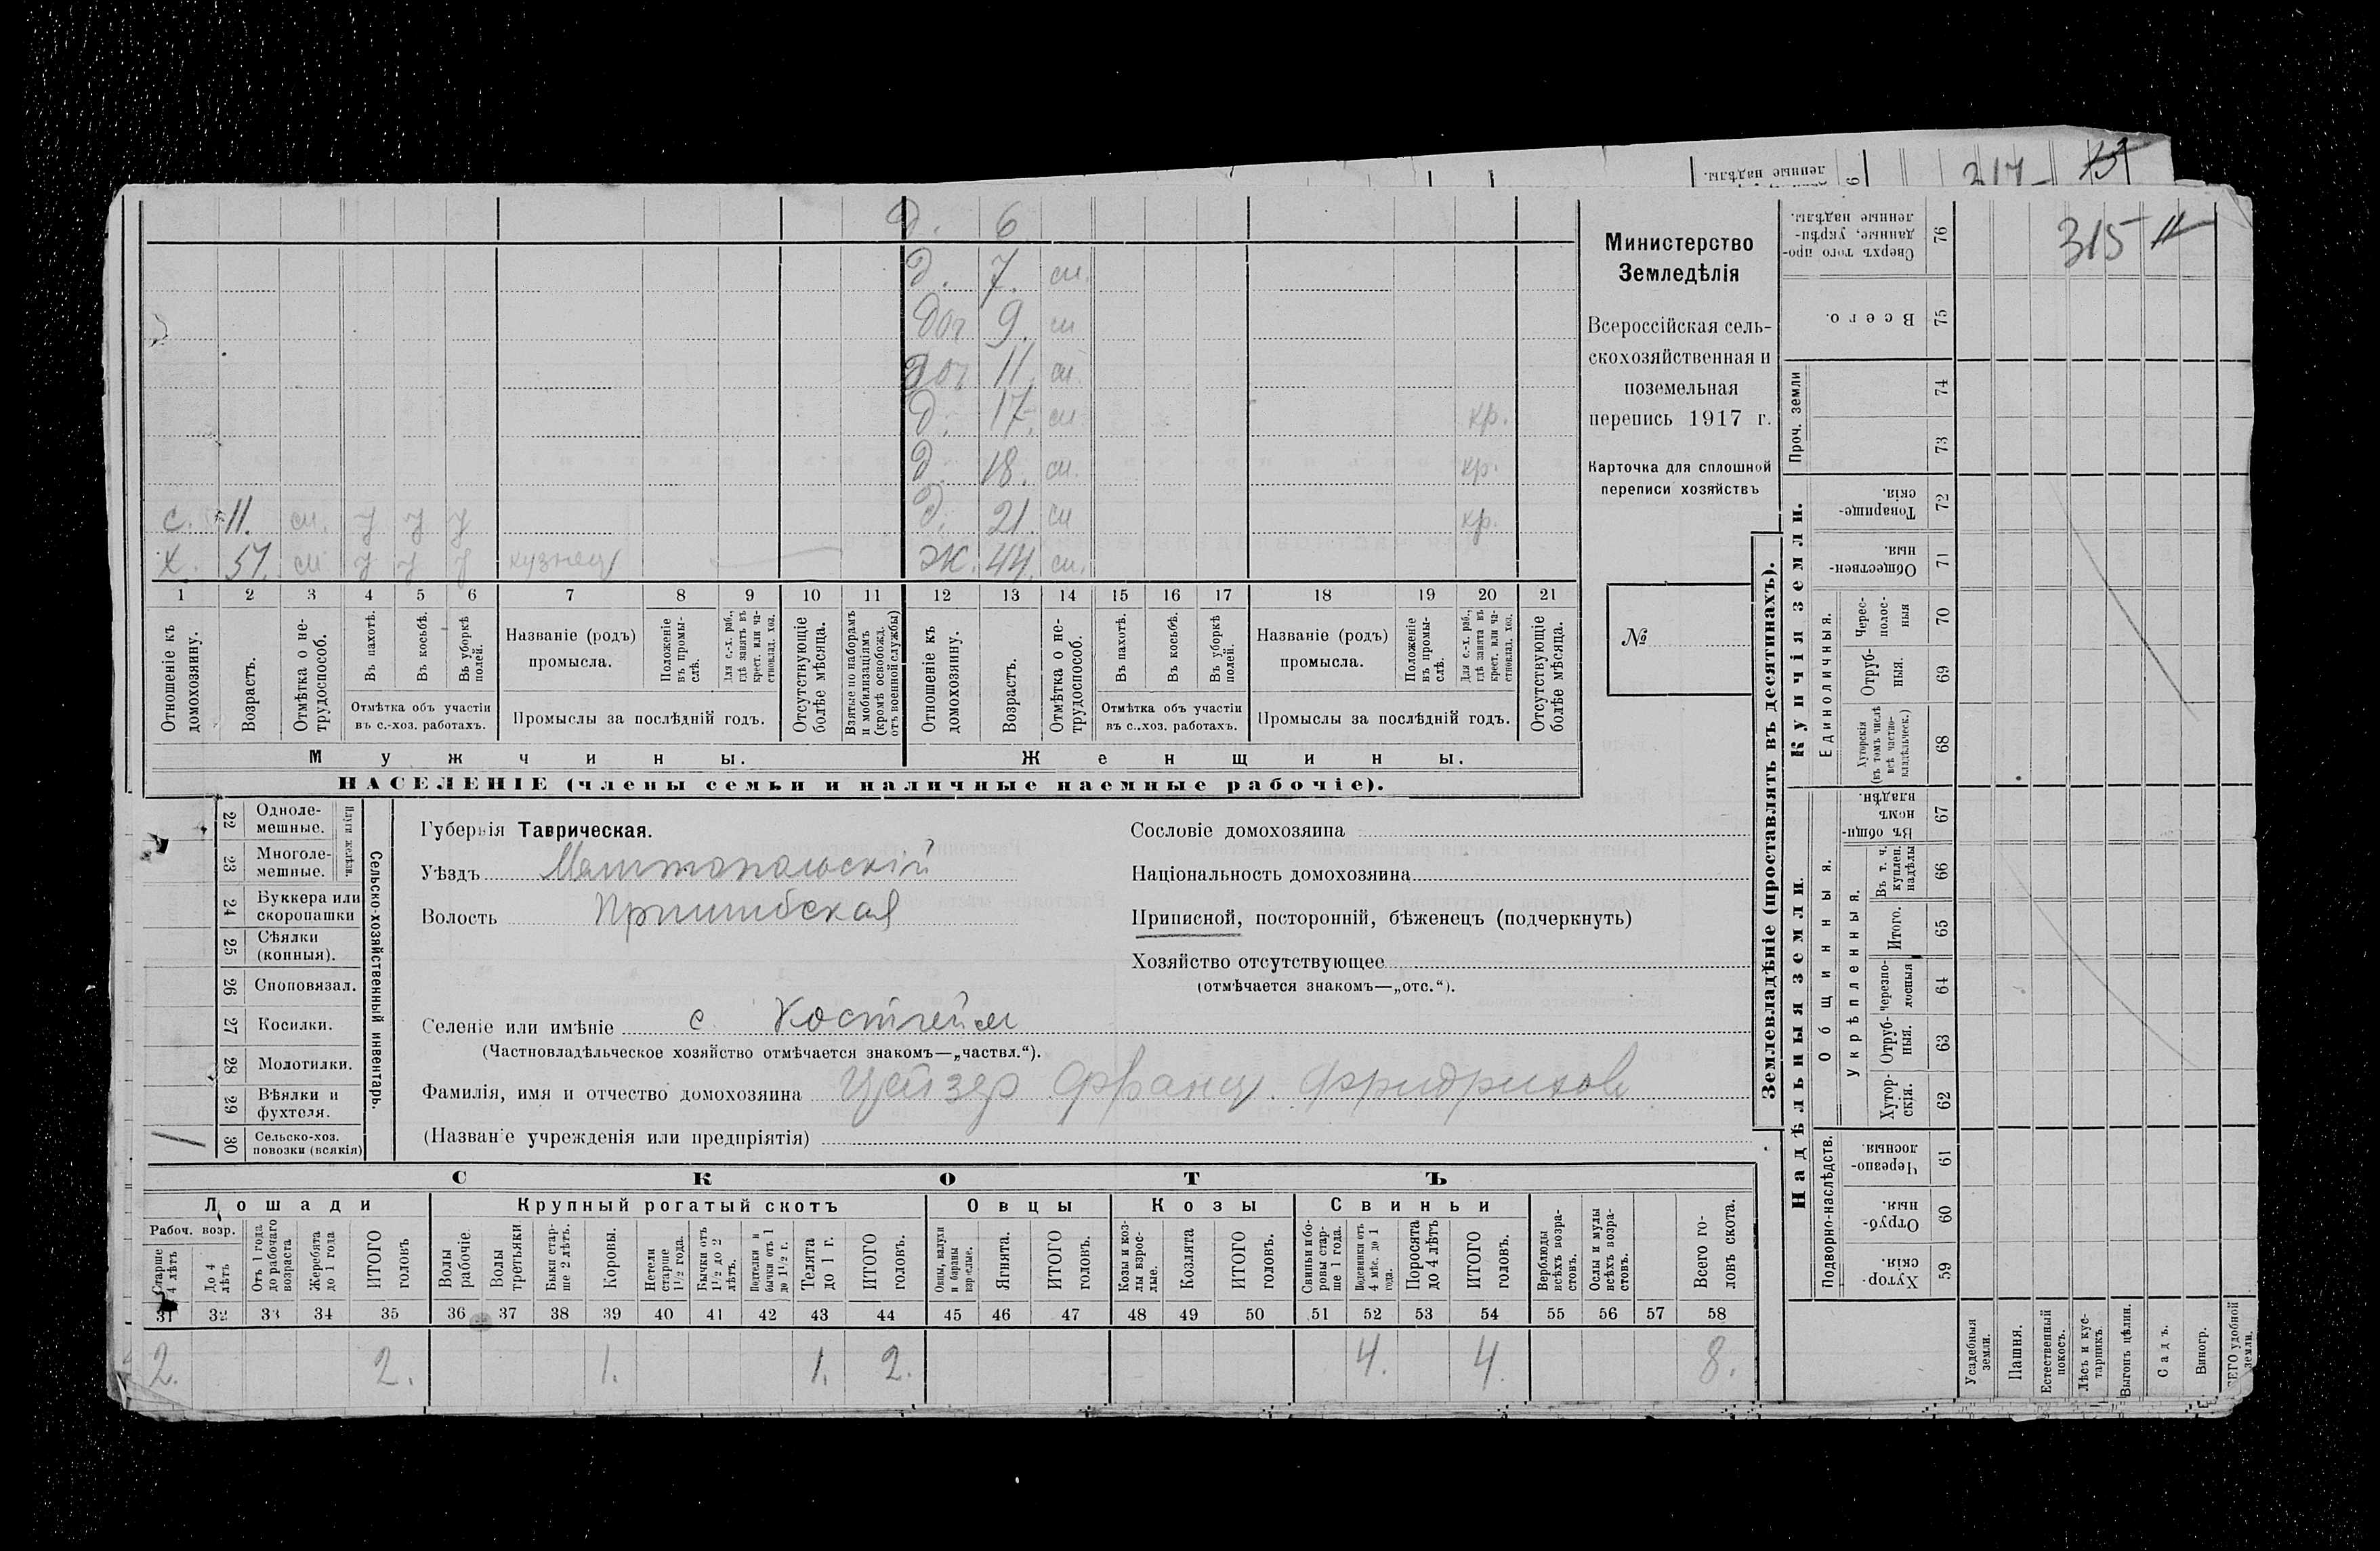 ленные надѣлы.
6
317
Д. 6
Д. 7. см.
Доч 9. см
Доч 11. см.
Д. 17. см кр.
Д. 18. см. кр.
С. 11. см. У У У Д. 21. см кр.
Х. 51. см У У У кузнец Ж. 44. см.
1 2 3 4 5 6 7 8 9 10 11 12 13 14 15 16 17 18 19 20 21
Отношеніе къ домохозяину.
Возрастъ.
Отмѣтка о не-трудоспособ.
Въ пахотѣ.
Въ косьбѣ.
Въ уборкѣ полей.
Отмѣтка объ участіи
въ с.-хоз. работахъ.
Названіе (родъ)
промысла.
Положеніе въ промы-слѣ.
Для с.-х. раб., гдѣ занятъ въ крест. или ча-стновлад. хоз.
Промыслы за послѣдній годъ.
Отсутствующіе болѣе мѣсяца.
Взятые по наборамъ и мобилизаціямъ (кромѣ освобожд. отъ военной службы)
Отношеніе къ домохозяину.
Возрастъ.
Отмѣтка о не-трудоспособ.
Въ пахотѣ.
Въ косьбѣ.
Въ уборкѣ полей.
Отмѣтка объ участіи
въ с..хоз. работахъ.
Названіе (родъ)
промысла.
Положеніе въ промы-слѣ.
Для с.-х. раб., гдѣ занята въ крест. или ча-стновлад. хоз.
Промыслы за послѣдній годъ.
Отсутствующіе болѣе мѣсяца.
Мужчины. Женщины.
НАСЕЛЕНІЕ (члены семьи и наличные наемные рабочіе).
Министерство
Земледѣлія
Всероссійская сель-
скохозяйственная и
поземельная
перепись 1917 г.
Карточка для сплошной
переписи хозяйствъ
№
22 Одноле-
мешные.
23 Многоле-
мешные.
Плуги желѣзн.
24 Буккера или
скоропашки
25 Сѣялки
(конныя).
26 Сноповязал.
27 Косилки.
28 Молотилки.
29 Вѣялки и
фухтеля.
30 Сельско-хоз.
повозки (всякія)
Сельско-хозяйственный инвентарь.
Губернія Таврическая.
Уѣздъ Мелитопольскій
Волость Пришибская
Селеніе или имѣніе с. Костгейм
(Частновладѣльческое хозяйство отмѣчается знакомъ—„частвл.“).
Фамилія, имя и отчество домохозяина Цейзер Франц Фридрихов
(Названіе учрежденія или предпріятія)
Сословіе домохозяина
Національность домохозяина
Приписной, посторонній, бѣженецъ (подчеркнуть)
Хозяйство отсутствующее
(отмѣчается знакомъ—„отс.“).
СКОТЪ
Лошади Крупный рогатый скотъ Овцы Козы Свиньи
Рабоч. возр.
Старше 4 лѣтъ
До 4 лѣтъ
Отъ 1 года до рабочаго возраста
Жеребята до 1 года
ИТОГО головъ
Волы рабочіе.
Волы третьяки
Быки стар-ше 2 лѣтъ.
Коровы.
Нетели старше 1½ года.
Бычки отъ 1½ до 2 лѣтъ.
Подтелки и бычки отъ 1 до 1½ г.
Телята до 1 г.
ИТОГО головъ.
Овцы, валухи и бараны взрослые.
Ягнята.
ИТОГО головъ.
Козы и коз-лы взрос-лые.
Козлята
ИТОГО головъ.
Свиньи и бо-ровы стар-ше 1 года.
Подсвинки отъ 4 мѣс. до 1 года.
Поросята до 4 лѣтъ
ИТОГО головъ.
Верблюды всѣхъ возра-стовъ.
Ослы и мулы всѣхъ возра-стовъ.
Всего го-ловъ скота.
31 32 33 34 35 36 37 38 39 40 41 42 43 44 45 46 47 48 49 50 51 52 53 54 55 56 57 58
2. 2. 1. 1. 2. 4. 4. 8.
Землевладѣніе (проставлять въ десятинахъ).
315 11
Сверхъ того про-данные, укрѣп-ленные надѣлы. 76
Всего. 75
Проч. земли
74
73
Купчія земли.
Товарище-скія. 72
Обществен-ныя. 71
Единоличныя.
Черес-полос-ныя 70
Отруб-ныя. 69
Хуторскія (въ томъ числѣ всѣ частно-владѣльческ.) 68
Надѣльныя земли.
Общинныя.
Въ общи-номъ владѣн. 67
Укрѣпленныя.
Въ т. ч. куплен. надѣлы 66
Итого. 65
Черезпо-лосныя 64
Отруб-ныя. 63
Хутор-скія. 62
Подворно-наслѣдств.
Черезпо-лосныя 61
Отруб-ныя. 60
Хутор-скія. 59
Усадебныя земли.
Пашня.
Естественный покосъ.
Лѣсъ и кус-тарникъ.
Выгонъ цѣлин.
Садъ.
Виногр.
ВСЕГО удобной земли.